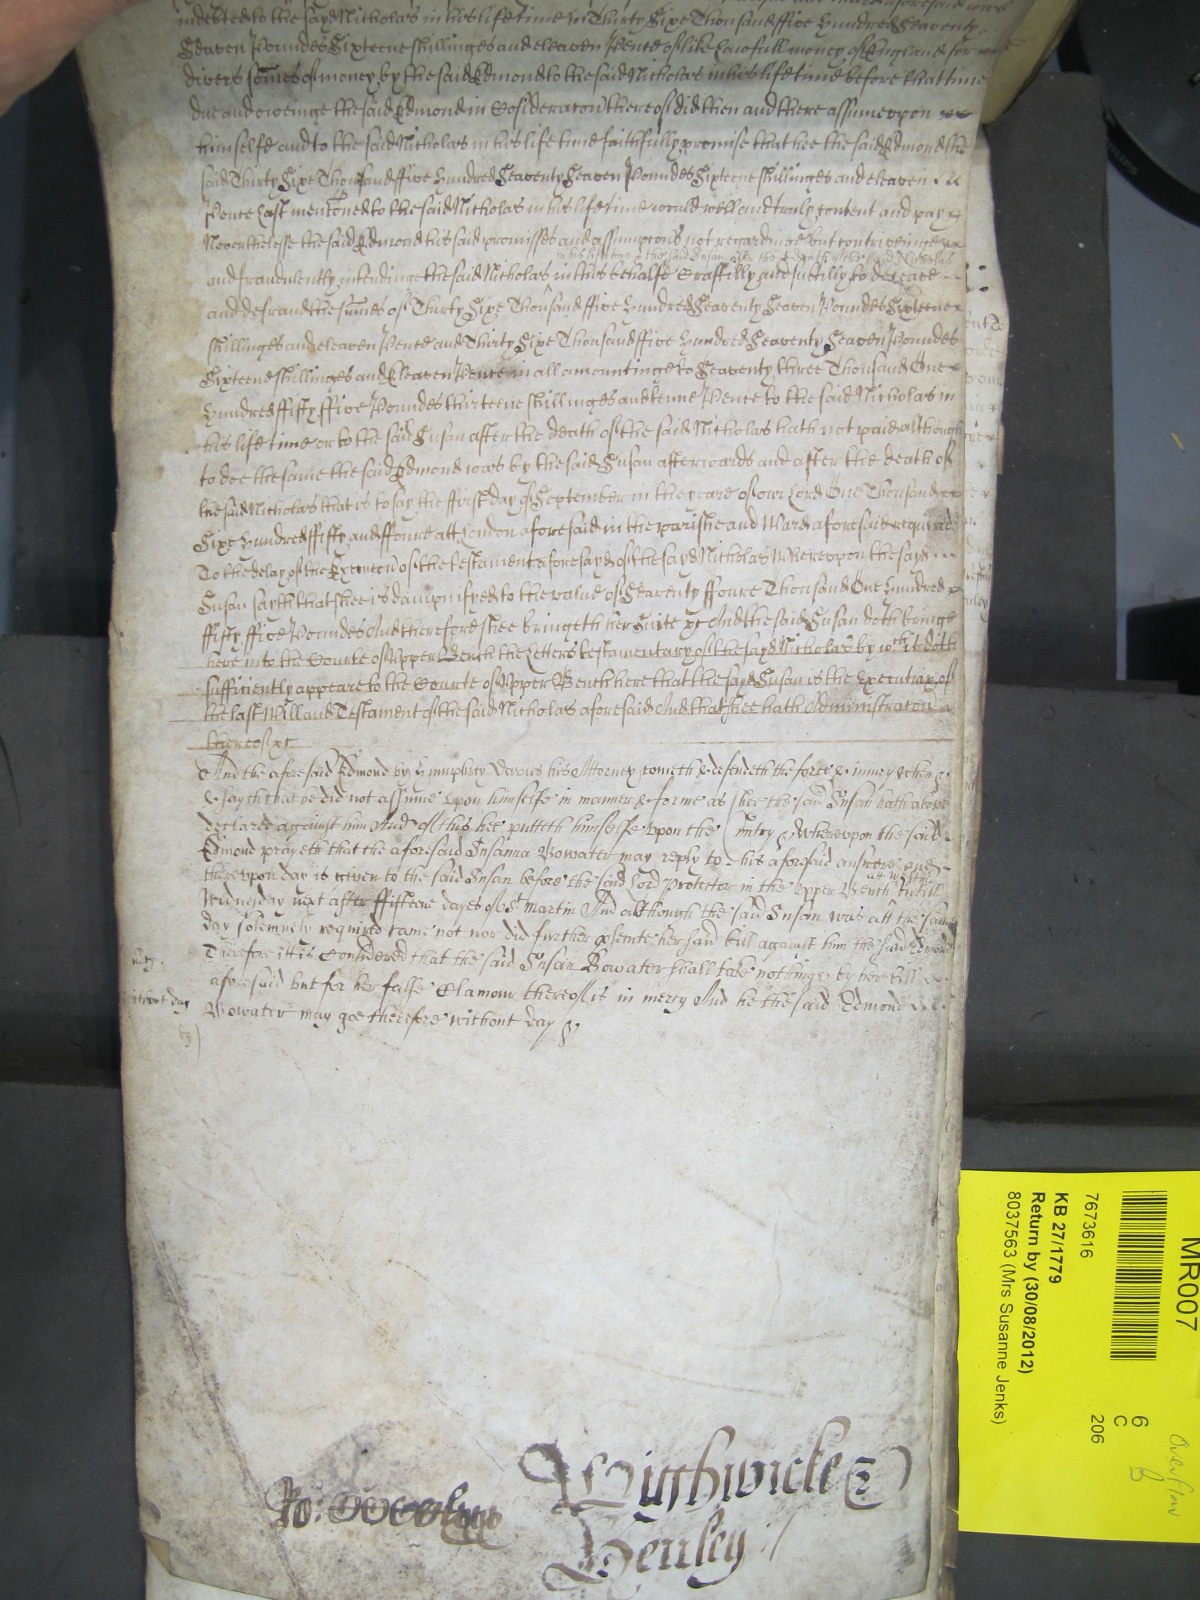 indebted to the sayd Nicholas in his life time in Thirty Sixe Thousand ffive hundred Seaventy
Seaven Poundes Sixteene shillinges and eleaven Pence of like lawfull money of England for
divers somes of money by the said Edmond to the said Nicholas in his life time before that time
due and oweinge the said Edmond in Cosideracon thereof did then and there assume upon
himselfe and to the said Nicholas in his life time faithfully promise that hee the said Edmond the
said Thirty Sixe Thousand ffive hundred Seaventy Seaven Poundes Sixteene shillinges and eleaven
Pence last menconed to the said Nicholas in his life time would well and truly content and pay
Neverthelesse the said Edmond his said promisses and assumpcons not regardinge but contriveinge
in his life time & the said Susan after the death of the said Nicholas
and fraudulently intendinge the said Nicholas in this behalfe Craftilly and suttilly to deceave
and defraud the sumes of Thirty Sixe Thousand ffive hundred Seaventy Seaven Poundes Sixteene
shillinges and eleaven Pence and Thirty Sixe Thousand ffive hundred Seaventy Seaven Poundes
Sixteene shillinges and Eleaven Pence in all amountinge to Seaventy three Thousand One
hundred fifty ffive Poundes thirteene shillinges and tenne Pence to the said Nicholas in
his life time or to the said Susan after the death of the said Nicholas hath not paid although
to doe the same the said Edmond was by the said Susan afterwards and after the death of
the said Nicholas that is to say the first day of September in the yeare of our Lord One Thousand
Sixe hundred ffifty and ffoure att London aforesaid in the parishe and Ward aforesaid required
To the delay of the Execucon of the testament aforesayd of the sayd Nicholas Whereupon the sayd
Susan sayth that shee is dampnifyed to the value of Seaventy ffoure Thousand One hundred
ffifty ffive Poundes And therefore shee bringeth her Suite &c And the said Susan doth bringe
here into the Courte of Upper Bench the Letters testamentary of the sayd Nicholas by wch it doth
sufficiently appeare to the Courte of Upper Bench here that the sayd Susan is the Executrix of
the last Will and Testament of the said Nicholas aforesaid And that shee hath Administracon
thereof &c
And the aforesaid Edmond by Humphrey his Attorney cometh & defendeth the force & iniury when &
& sayth that he did not assume upon himselfe in manner & forme as shee the said Susan hath above
declared against him And of this hee putteth himselfe upon the Cuntry & whereupon the said
Edmond prayeth that the aforesaid Susanna Bowater may reply to his aforesaid answere and
att Westmr
thereupon day is given to the said Susan before the said Lord Protector in the Upper Bench untill
Wednesday next after ffifteene dayes of St Martin And allthough the said Susan was att the same
day solemnely required came not nor did further psecute her said bill against him the said Edmond
mercy.
Therefore itt is Considered that the said Susan Bowater shall take nothinge by her bill
aforesaid but for her false Clamour thereof is in mercy And he the said Edmond
without day
Bowater may goe therefore without day &
Wightwicke
Henley
MR007
6
C
206
7673616
KB 27/1779
Return by (30/08/2012)
8037563 (Mrs Susanne Jenks)
PHILIPS